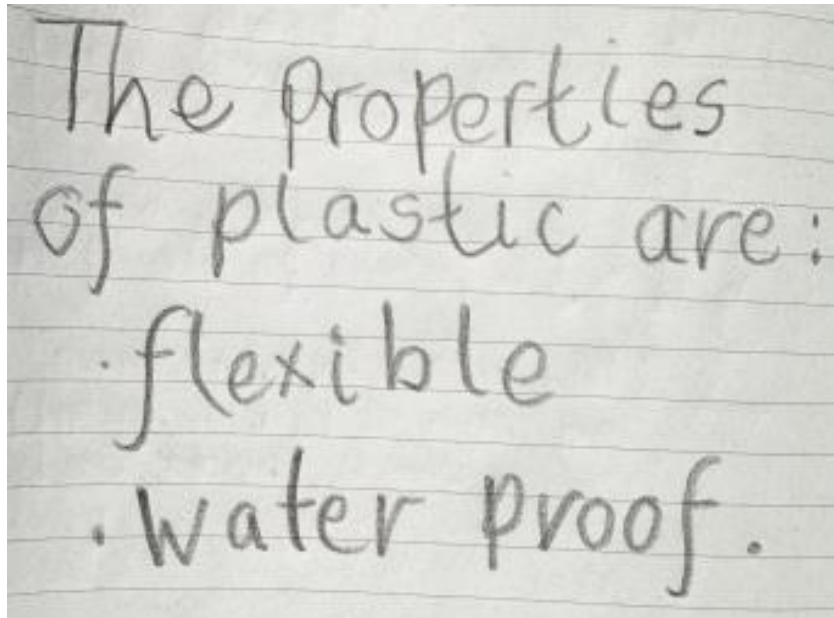 The properties
of plastic are:
· flexible
· water proof.